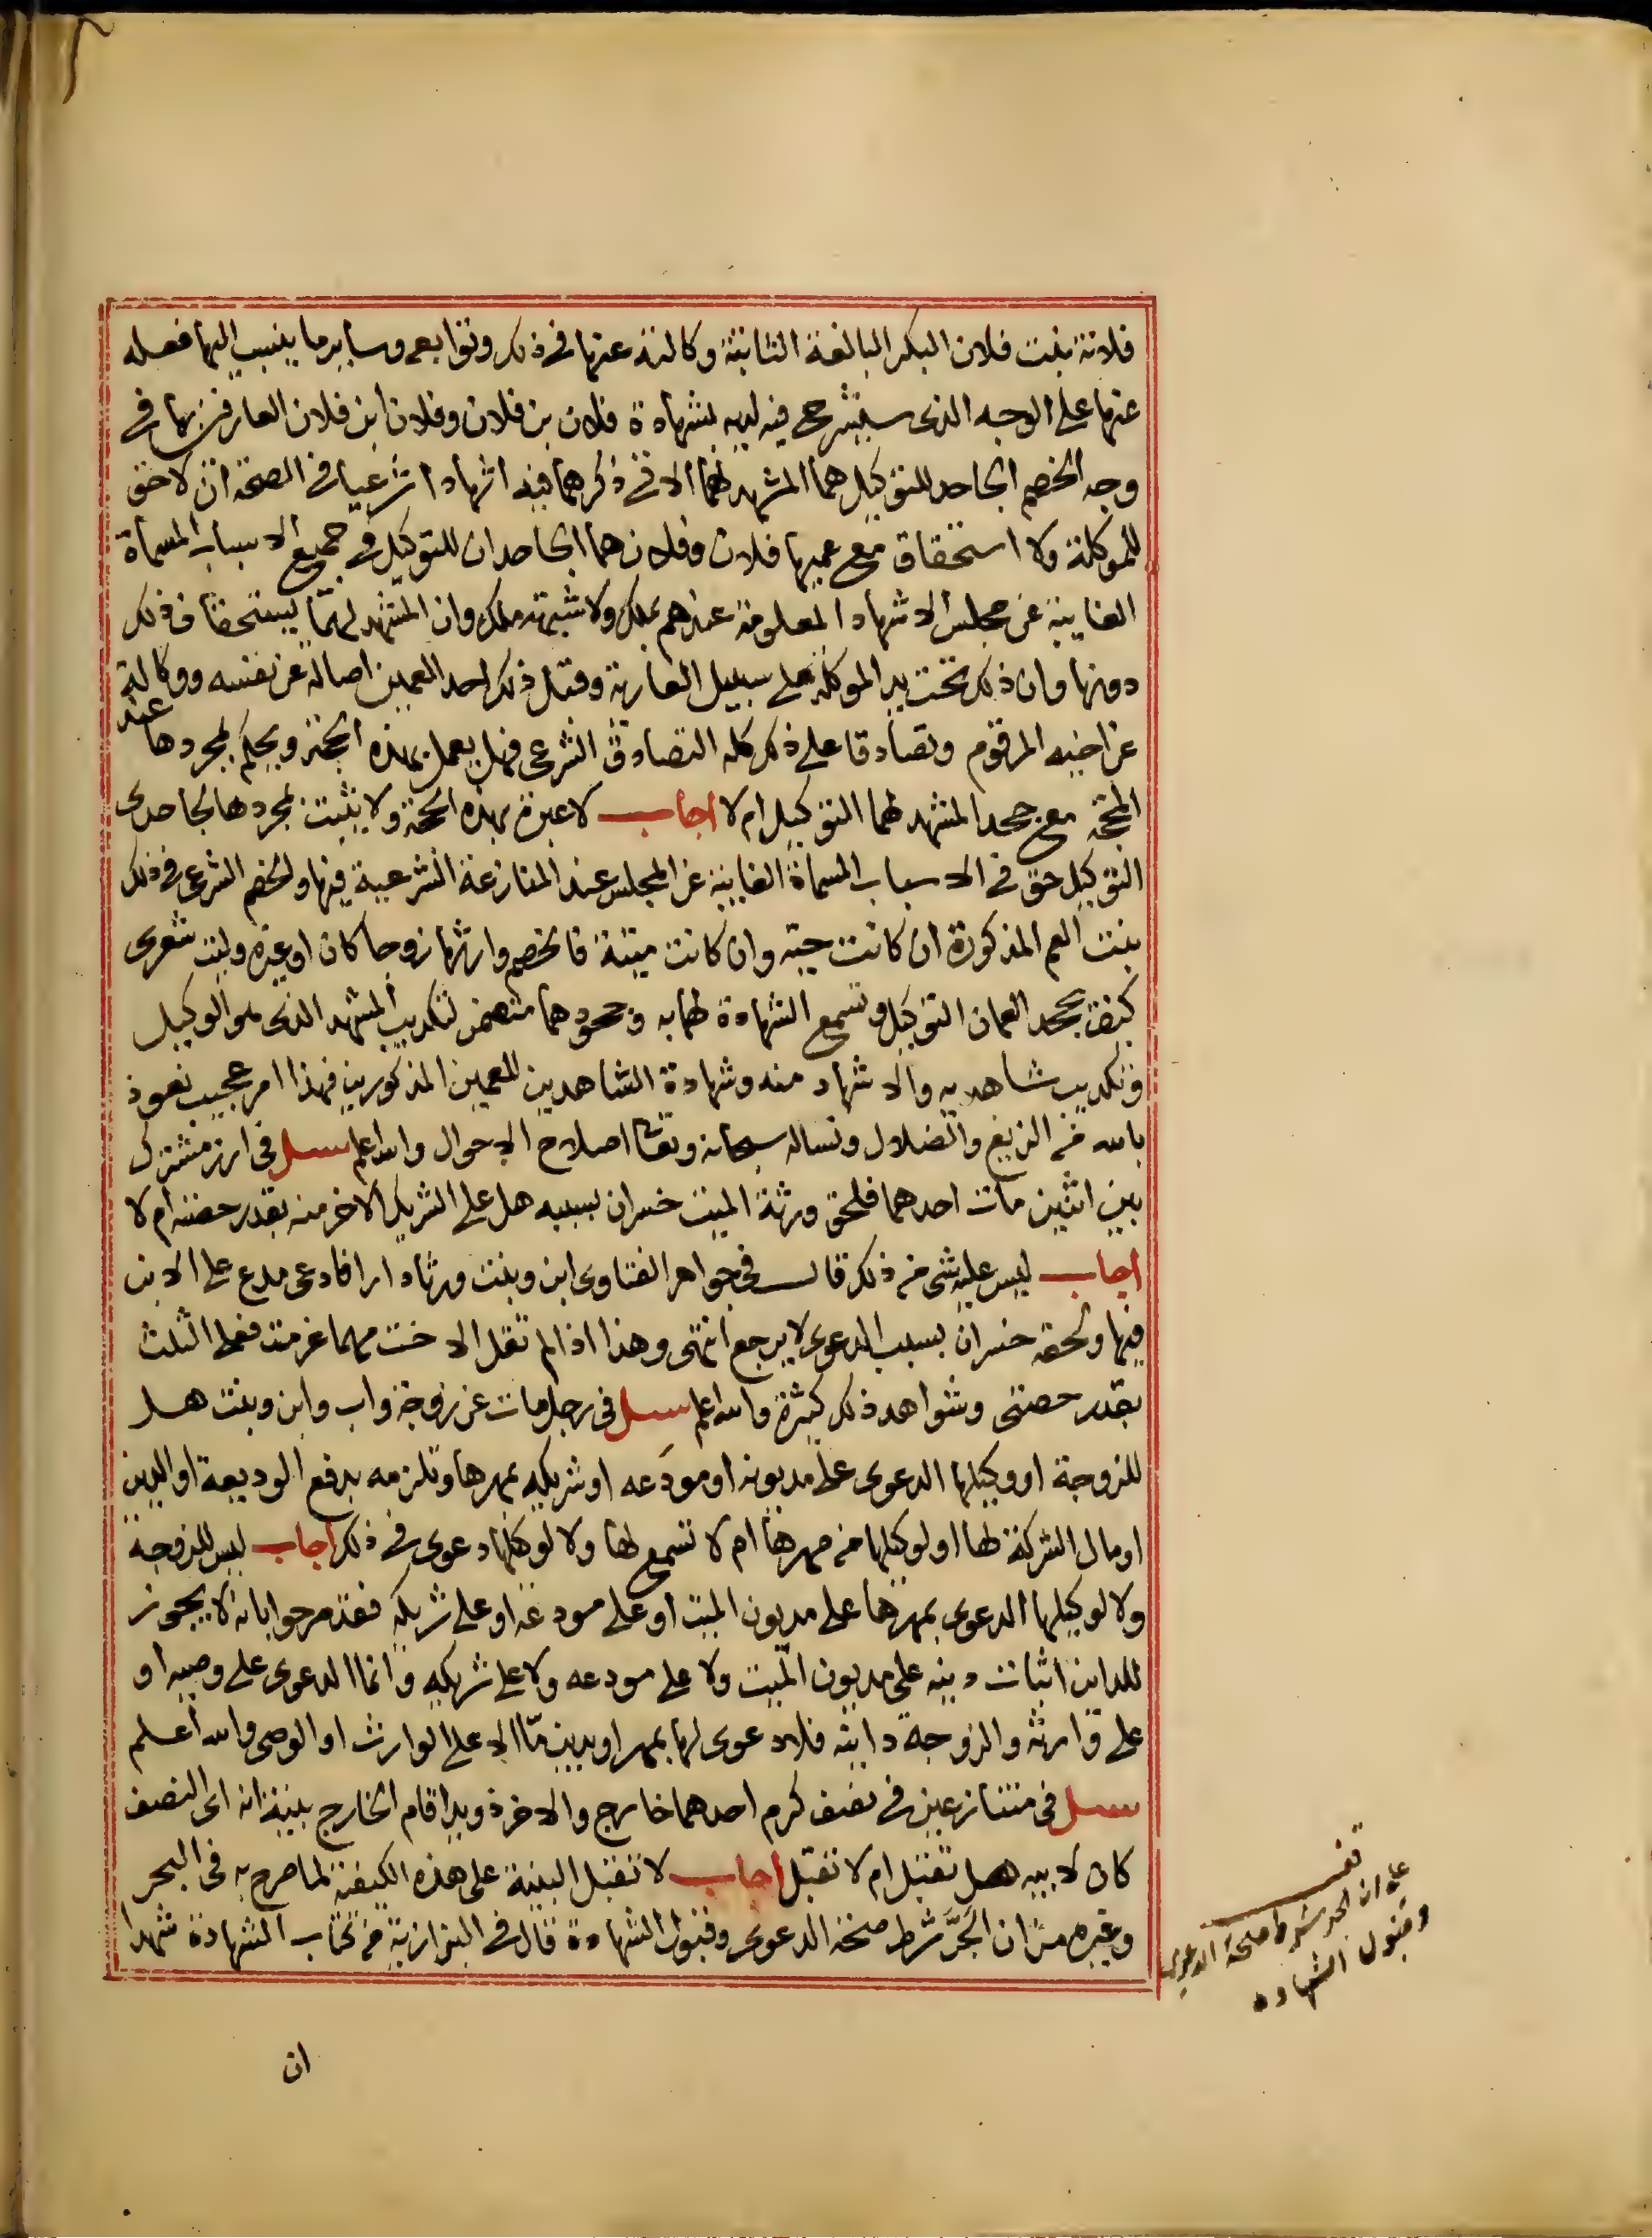 فلانة بنت فلان البكر البالغة الثابتة وكالته عنها في ذلك وتوابعه وساير ما ينسب اليها فعله
عنها على الوجه الذى سيشرح فيه لديه بشهادة فلان بن فلان وفلان ابن فلان العارفين بها في
وجه الخصم الجاحد للتوكيل هما المشهد لهما الاتي ذكرهما فيه اشهادا شرعيا في الصحة ان لا حق
للموكلة ولا استحقاق مع عميها فلان وفلان هما الجاحدان للتوكيل في جميع الاسباب المسماة
الغايبة عن مجلس الاشهاد المعلومة عندهم بملك ولا شبهة ملك وان المشهد لهما يستحقان ذلك
دونها وان ذلك تحت يد الموكلة على سبيل العارية وقبل ذلك احد العمين اصالة عن نفسه ووكالة
عن اخيه المرقوم وتصادقا على ذلك كله التصادق الشرعى فهل يعمل بهذه الحجة ويحكم بمجردها عند
المحجة مع جحد المشهد لهما التوكيل ام لا اجاب لا عبرة بهذه الحجة ولا يثبت بمجردها لجاحدى
التوكيل حق في الاسباب المسماة الغايبة عن المجلس عند المنازعة الشرعية فيها والخصم الشرعى في ذلك
بنت العم المذكورة ان كانت حية وان كانت ميتة فالخصم وارثها زوجا كان او غيره وليت شعرى
كيف يجحد العمان التوكيل وتسمع الشهادة لهما به وجحودهما متضمن لتكذيب المشهد الذى هو الوكيل
وتكذيب شاهديه والاشهاد منه وشهادة الشاهدين للعمين المذكورين فهذا امر عجيب نعوذ
بالله من الزيغ والضلال ونساله سبحانه وتعالى اصلاح الاحوال والله اعلم سئل في ارز مشترك
بين اثنين مات احدهما فلحق ورثة الميت خسران بسببه هل على الشريك الاخر منه بقدر حصته ام لا
اجاب ليس عليه شى من ذلك قال في جواهر الفتاوى ابن وبنت ورثا دارا فادعى مدع على الابن
فيها ولحقه خسران بسبب الدعوى لا يرجع انتهى وهذا اذا لم تقل الاخت مهما غرمت فعلى الثلث
بقدر حصتى وشواهد ذلك كثيرة والله اعلم سئل في رجل مات عن زوجة واب وابن وبنت هل
للزوجة او وكيلها الدعوى على مديونه او مودعه او شريكه بمهرها وتلزمه بدفع الوديعة او الدين
او مال الشركة لها او لوكيلها من مهرها ام لا تسمع لها ولا لوكيلها دعوى في ذلك اجاب ليس للزوجة
ولا لوكيلها الدعوى بمهرها على مديون الميت او على مودعه او على شريكه فقد صرحوا بانه لا يجوز
للداين اثبات دينه على مديون الميت ولا على مودعه ولا على شريكه وانما الدعوى على وصيه او
على وارثه والزوجة داينة فلا دعوى لها بمهر او بدين ما الا على الوارث او الوصى والله اعلم
سئل في متنازعين في نصف كرم احدهما خارج والاخر ذو يد اقام الخارج بينة انه اى النصف
كان لابيه هل تقبل ام لا تقبل اجاب لا تقبل البينة على هذه الكيفية لما صرح به في البحر
وغيره من ان الجرّ شرط صحة الدعوى وقبول الشهادة قال في البزازية من كتاب الشهادة شهدا
ان
على ان الجر شرط صحة الدعوى
وقبول الشهادة